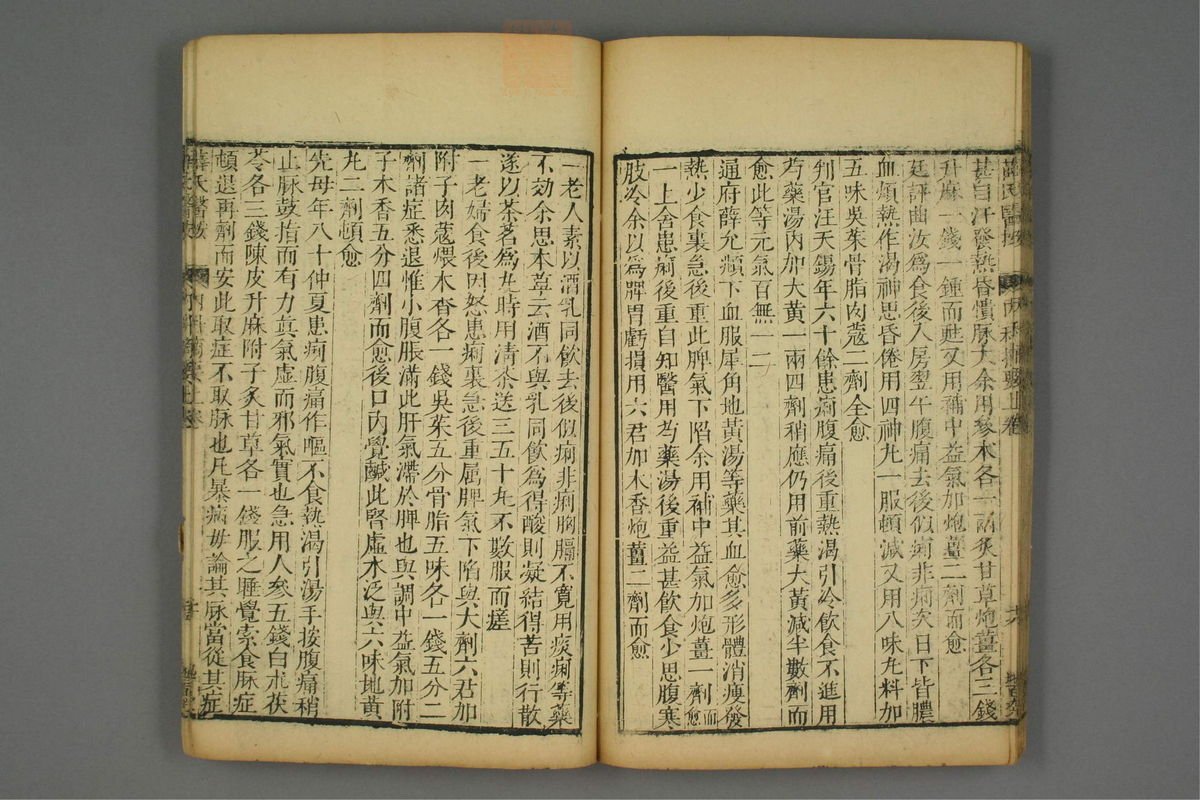 薛氏醫按 內科摘要上卷 六
甚自汗發熱昏憒脉大余用參术各一兩炙甘草炮薑各三錢
升麻一錢一鍾而甦又用補中益氣加炮薑二劑而愈
廷評曲汝爲食後入房翌午腹痛去後似痢非痢次日下皆膿
血煩熱作渴神思昏倦用四神丸一服頓減又用八味丸料加
五味吳茱骨脂肉蔻二劑全愈
判官汪天錫年六十餘患痢腹痛後重熱渴引冷飲食不進用
芍藥湯內加大黃一兩四劑稍應仍用前藥大黃減半數劑而
愈此等元氣百無一二
通府薛允頫下血服犀角地黃湯等藥其血愈多形體消瘦發
熱少食裏急後重此脾氣下陷余用補中益氣加炮薑一劑而愈
一上舍患痢後重自知醫用芍藥湯後重益甚飲食少思腹寒
肢冷余以爲脾胃虧損用六君加木香炮薑二劑而愈
一老人素以酒乳同飲去後似痢非痢胸膈不寬用痰痢等藥
不効余思本草云酒不與乳同飲爲得酸則凝結得苦則行散
遂以茶茗爲丸時用清茶送三五十丸不數服而瘥
一老婦食後因怒患痢裏急後重屬脾氣下陷與大劑六君加
附子肉蔻煨木香各一錢吳茱五分骨脂五味各一錢五分二
劑諸症悉退惟小腹脹滿此肝氣滯於脾也與調中益氣加附
子木香五分四劑而愈後口內覺鹹此腎虛水泛與六味地黃
丸二劑頓愈
先母年八十仲夏患痢腹痛作嘔不食熱渴引湯手按腹痛稍
止脉鼓指而有力真氣虛而邪氣實也急用人參五錢白朮茯
苓各三錢陳皮升麻附子炙甘草各一錢服之睡覺索食脉症
頓退再劑而安此取症不取脉也凡暴病毋論其脉當從其症
薛氏醫按 內科摘要上卷